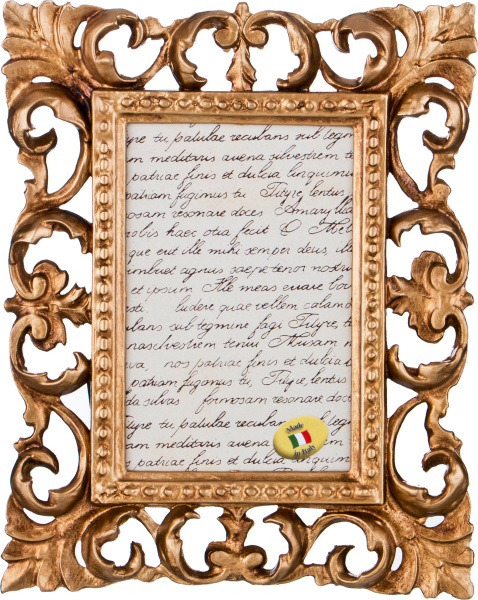 tyre tu patulae recubans sub tegm
m meditaris avena silvestrem te
patriae finis et dulcia linquimu
patriam fugimus tu Tityre, lentus
osam resonare doces Amaryllida
obis haec otia fecit O Mel
que erit ille mihi semper deus, ille
imbuet agnus saepe tenor nostri
et ipsum Ille meas errare bo
sti. ludere quae vellem calamo
bans sub tegmine fagi Tityre, te
nasilvestrem tenui Musam m
va, nos patriae finis et dulcia l
patriam fugimus tu Tityre, lentus
da silvas formosam resonare doce
tyre tu patulae recubans sub
am meditaris avena
patriae finis et dulcia linquim
Made
in Italy